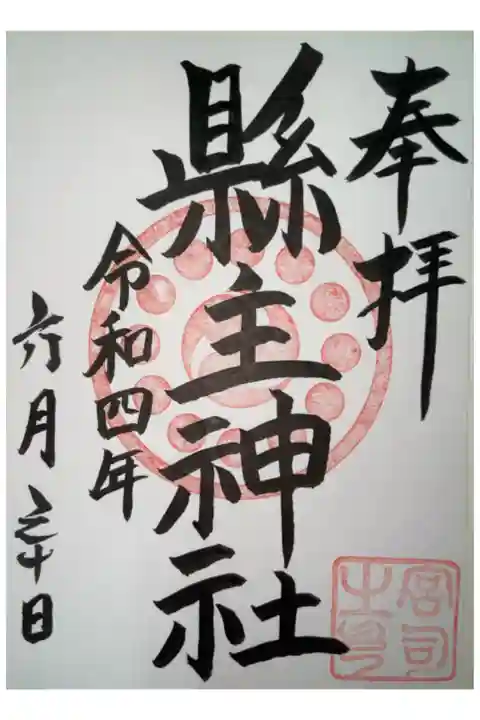 奉拝
縣主神社
令和四年
六月三十日
宮司
之印